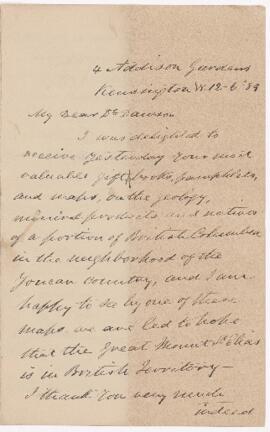 4 Addison Gardens
Kensington W. 12-6-89
My Dear Dr Dawson
I was delighted to
receive yesterday your most
valuable gift books, pamphlets,
and maps, on the geology,
mineral products and natives
of a portion of British Columbia
in the neighborhood of the
Youcan country, and I am
happy to see by one of these
maps we are led to hope
that the Great Mount St Elias
is in British Territory —
I thank you very much
indeed